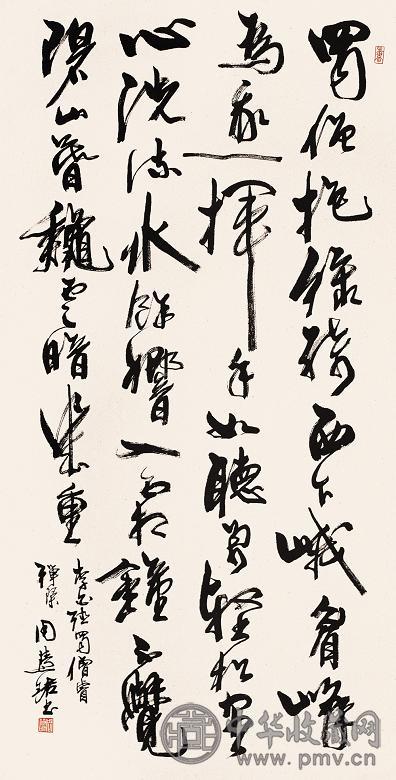 蜀僧抱綠綺西下峨眉峰
為我一揮手如聽萬壑松客
心洗流水餘響入霜鐘不覺
碧山暮龝雲暗幾重
李白聽蜀僧濬
彈琴 周慧珺書
中华收藏网
www.pmv.cn